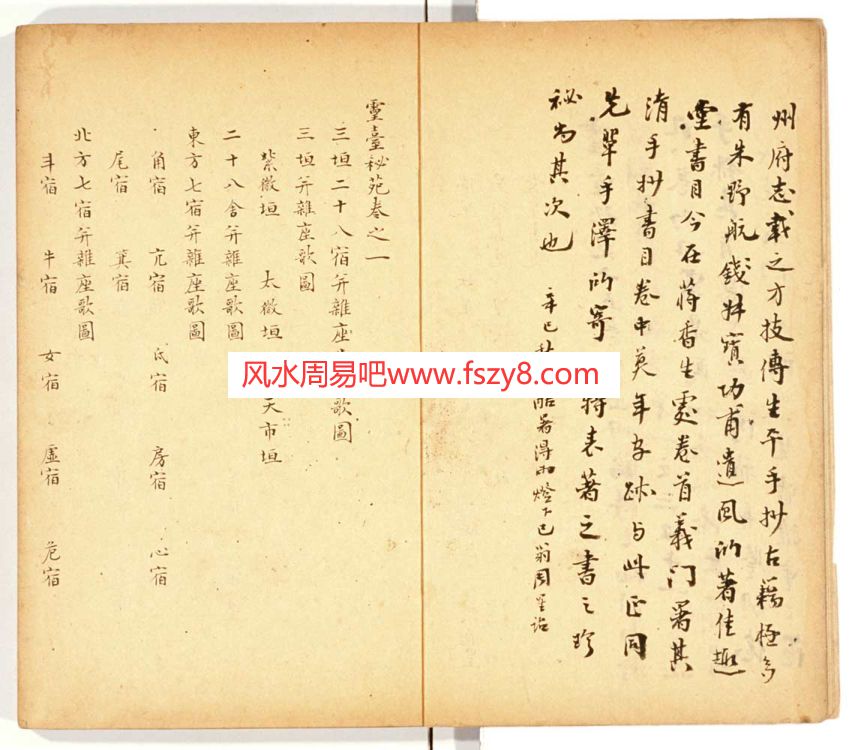 州府志載之方技傳生平手抄古籍極多
有朱野航錢叔寶功甫遺風的著佳趣
堂書目今在蔣香生處卷首義門署其
清手抄書目卷中英年字跡與此正同
先輩手澤的寄 特表著之書之珍
祕尚其次也 辛巳秋 酷暑得雨燈下巳翁周星詒
靈臺秘苑卷之一
三垣二十八宿并雜座 歌圖
三垣并雜座歌圖
紫微垣 太微垣 天市垣
二十八舍并雜座歌圖
東方七宿并雜座歌圖
角宿 亢宿 氐宿 房宿 心宿
尾宿 箕宿
北方七宿并雜座歌圖
斗宿 牛宿 女宿 虛宿 危宿
风水周易吧www.fszy8.com